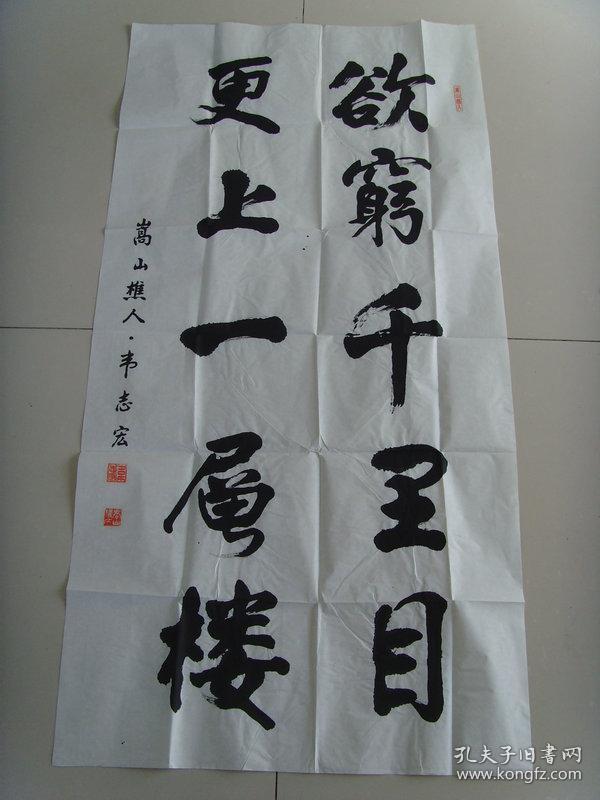 欲窮千里目
更上一層楼
嵩山樵人·韦志宏
孔夫子旧書网
www.kongfz.com